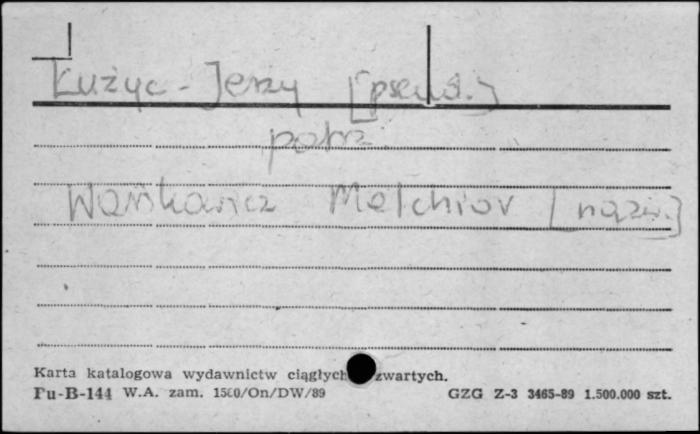 Łużyc - Jerzy [pseud.]
patrz
Wańkowicz Melchior [nazw.]
Karta katalogowa wydawnictw ciągłych zwartych.
Pu-B-144 W.A. zam. 1500/On/DW/89 GZG Z-3 3465-89 1.500.000 szt.